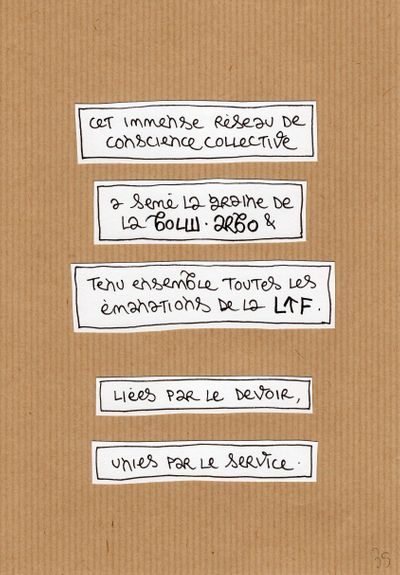 cet immense réseau de
conscience collective
a semé la graine de
la &
tenu ensemble toutes les
émanations de la L↑F.
liées par le devoir,
unies par le service.